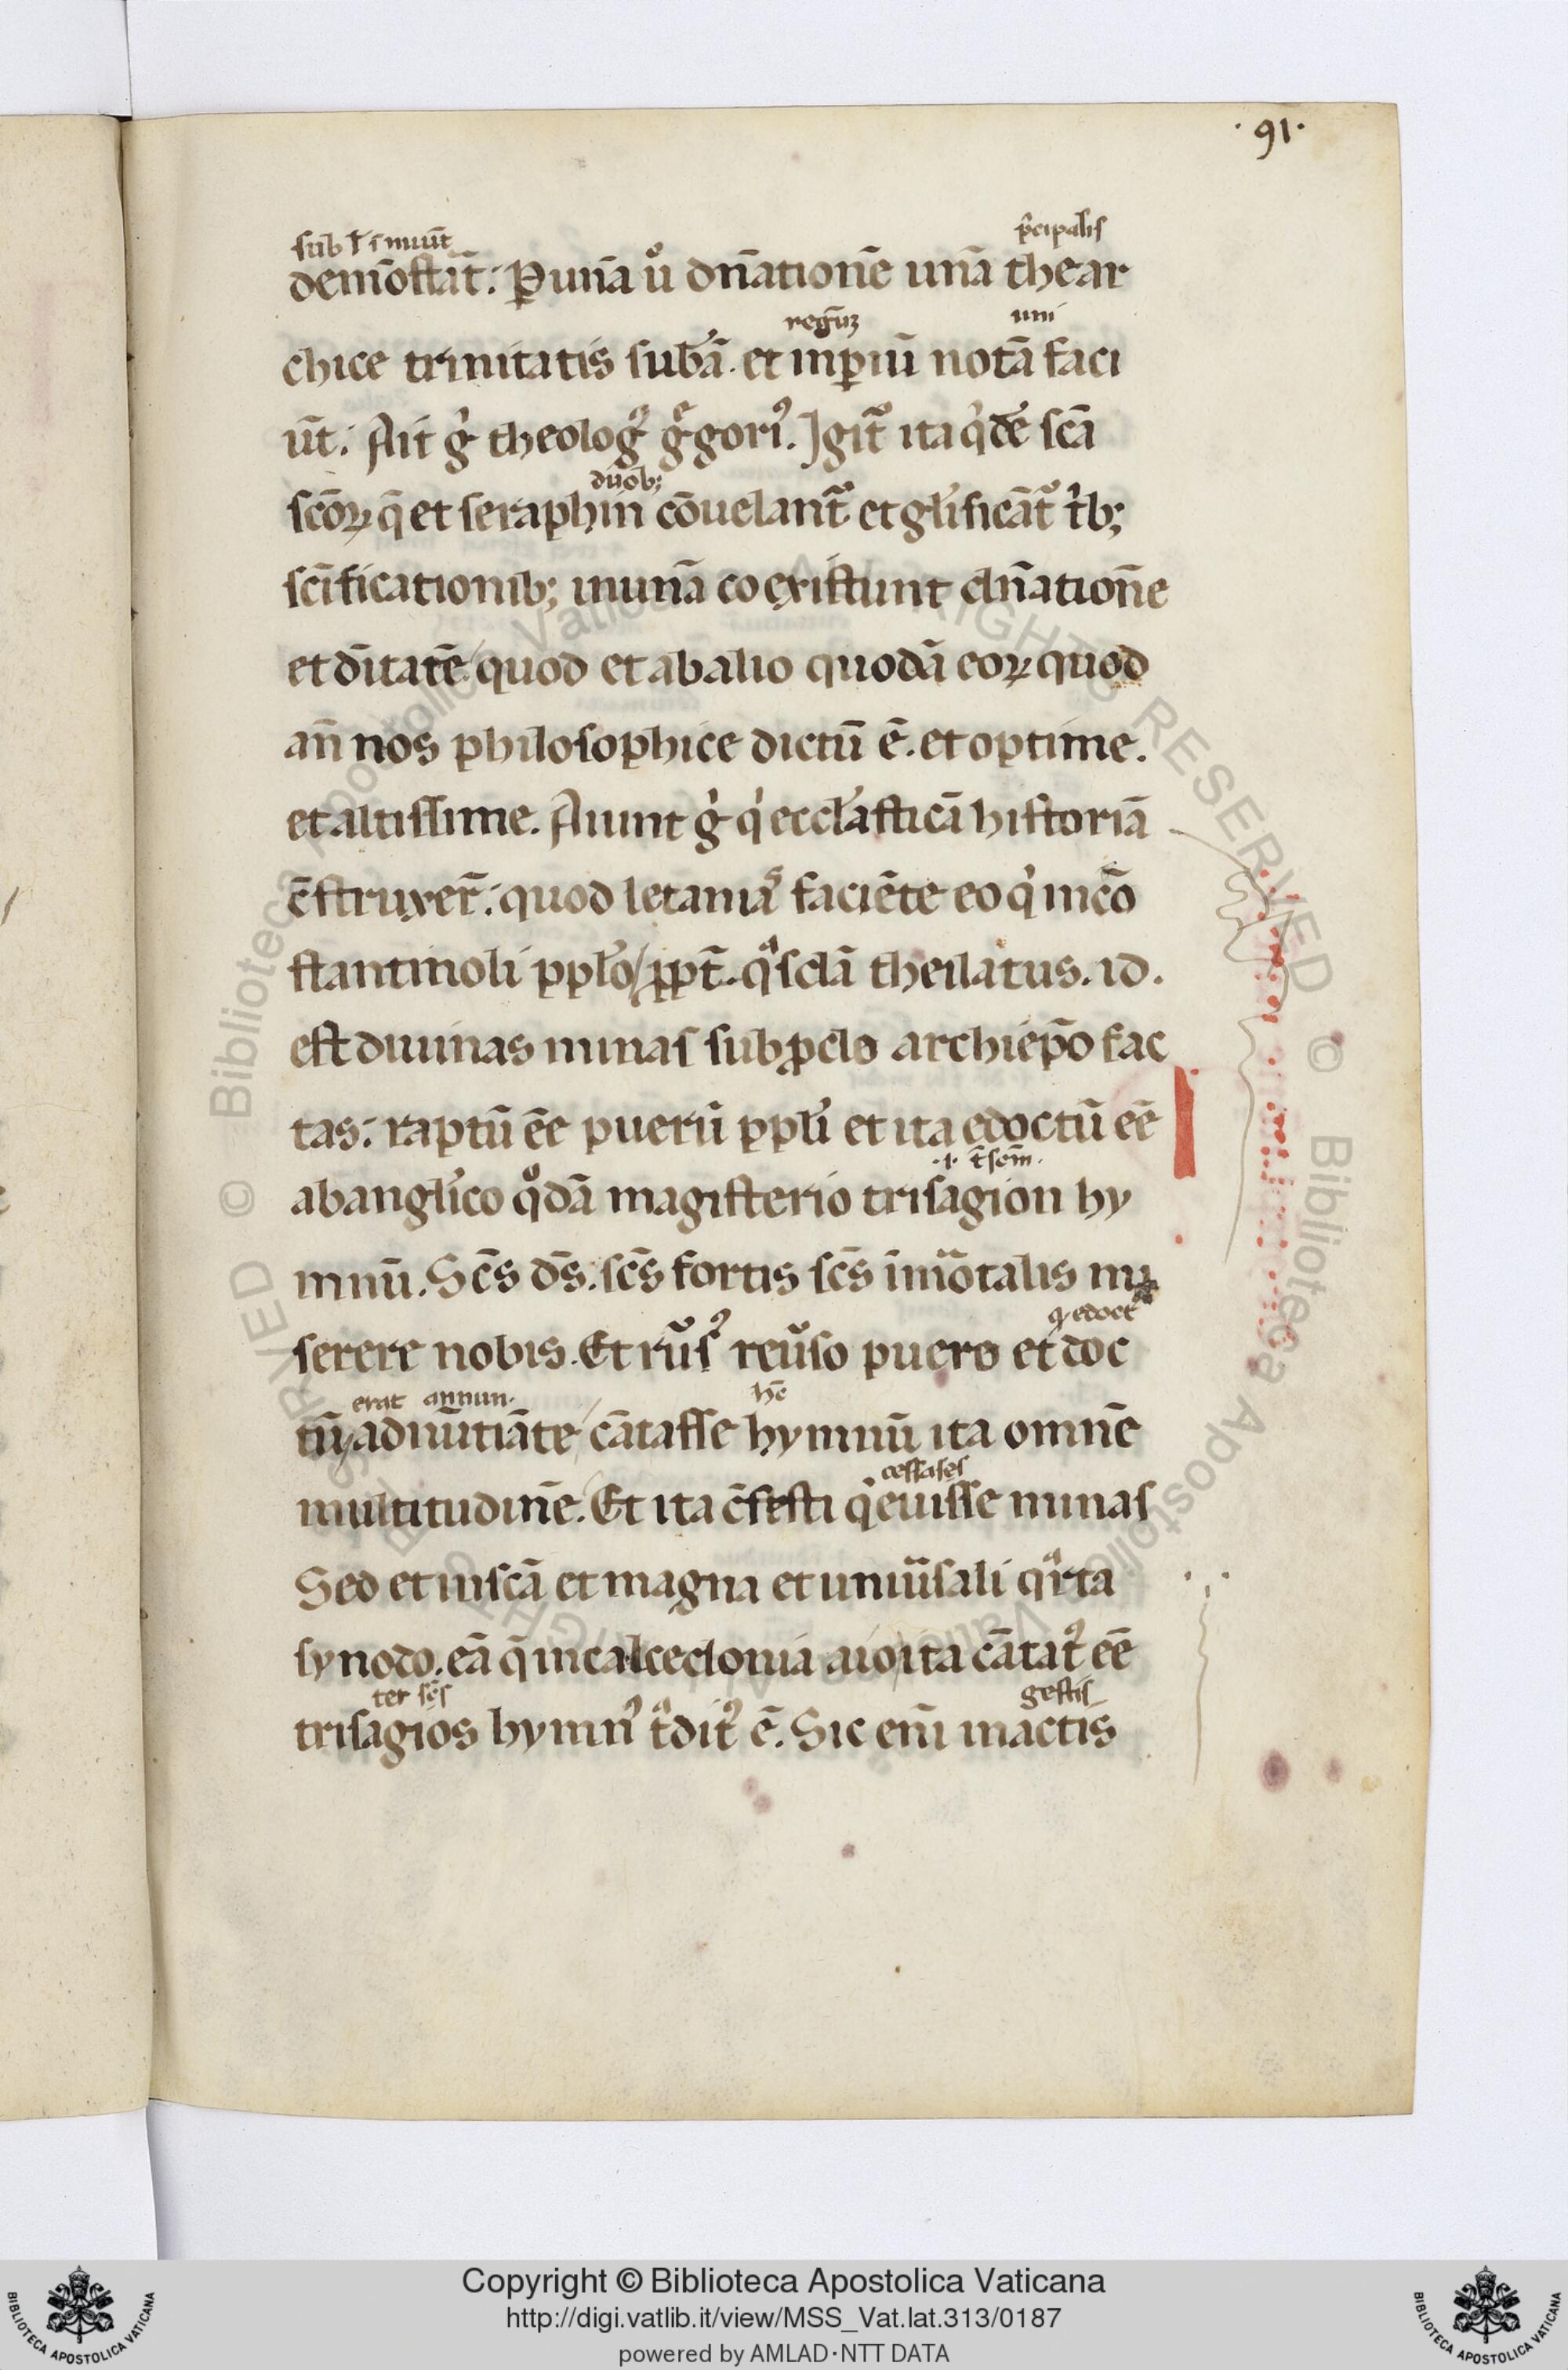 ·91·
sub ł ı̄muūt p̄cipalis
demōstāt: ꝑ unā uͦ dn̄ationē unā thear
regūꝫ uni
chice trinitatis sub̄ā. et inꝑiū notā faci
ūt: Ait gͥ theologꝰ gͤgoriꝰ. Igit᷑ ita qͥdē sc̄a
duob;
sc̄oꝝ q̄ et seraphin cōuelant᷑ et gl̄ificāt᷑ tͥb;
sc̄ificationib; inunā coexistunt dn̄ationē
et dūtatē quod et abalio quodā eoꝝ quod
an̄ nos philosophice dictū ē. et optime.
et altissime. Aiunt gͥ qͥ eccl̄asticā historiā
c̄struxer̄: quod letaniaͣs faciēte eo qͥ incō
stantinoli ppl̄o ꝓpt̄. qͣsdā theilatus. id.
est diuinas minas sub ꝓclo archiep̄o fac
tas: raptū ēe puerū ppl̄i et ita edoctū eē
·ı· t̄ scm̄.
abangl̄ico qͦdā magisterio trisagion hy
mnū. Sc̄s ds̄. sc̄s fortis sc̄s īmotalis mi
serere nobis. Et rūsꝰ reūso puero et doc
ꝗ edoct
erat annun. hc̄
tū adnūtiāte cātasse hymnū ita omnē
cessasēs
multitudinē. Et ita c̄festi qͥeuisse minas
Sed et in scā et magna et uniūsali qͣrta
synodo. eā q̄ incalcedonia aio ita cātatꝰ eē
ter sc̄s gestis
trisagios hymnꝰ tͣditꝰ ē. Sic enī inactis
© Biblioteca Apostolica Vaticana ALL RIGHTS RESERVED © Biblioteca Apostolica Vaticana ALL RIGHTS RESERVED
Copyright © Biblioteca Apostolica Vaticana
http://digi.vatlib.it/view/MSS_Vat.lat.313/0187
powered by AMLAD·NTT DATA
BIBLIOTECA APOSTOLICA VATICANA
BIBLIOTECA APOSTOLICA VATICANA